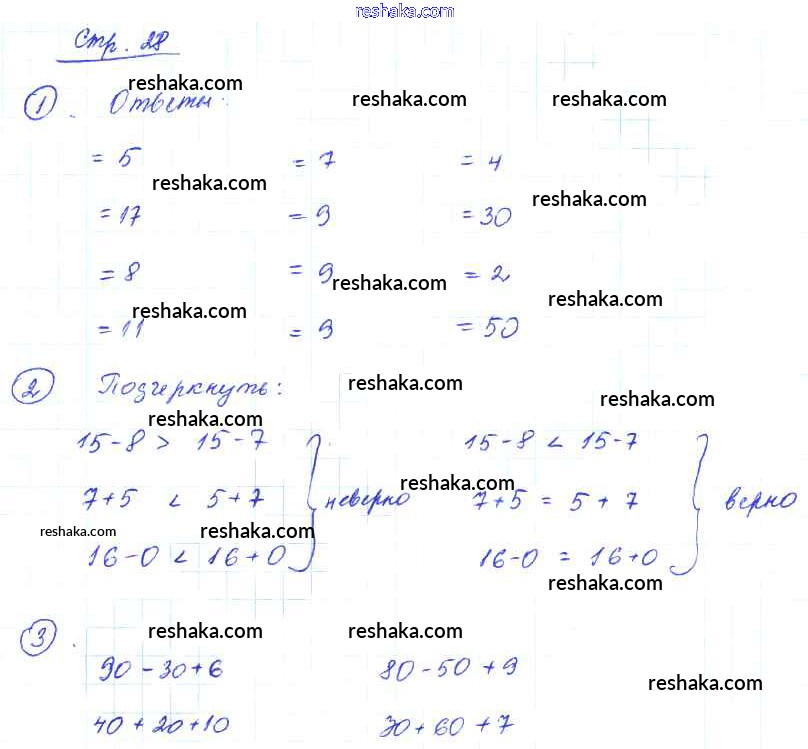 reshaka.com
Стр. 28
reshaka.com
1. Ответы:
reshaka.com reshaka.com
= 5 = 7 = 4
reshaka.com reshaka.com
= 17 = 9 = 30
= 8 = 9 = 2
reshaka.com
reshaka.com
reshaka.com
= 11 = 9 = 50
2 Подчеркнуть:
reshaka.com
reshaka.com
reshaka.com
15-8 > 15-7 15-8 < 15-7
reshaka.com
7+5 < 5+7 неверно 7+5 = 5+7 верно
reshaka.com reshaka.com
16-0 < 16+0 16-0 = 16+0
reshaka.com
3.
reshaka.com reshaka.com
90-30+6 80-50+9
reshaka.com
40+20+10 30+60+7